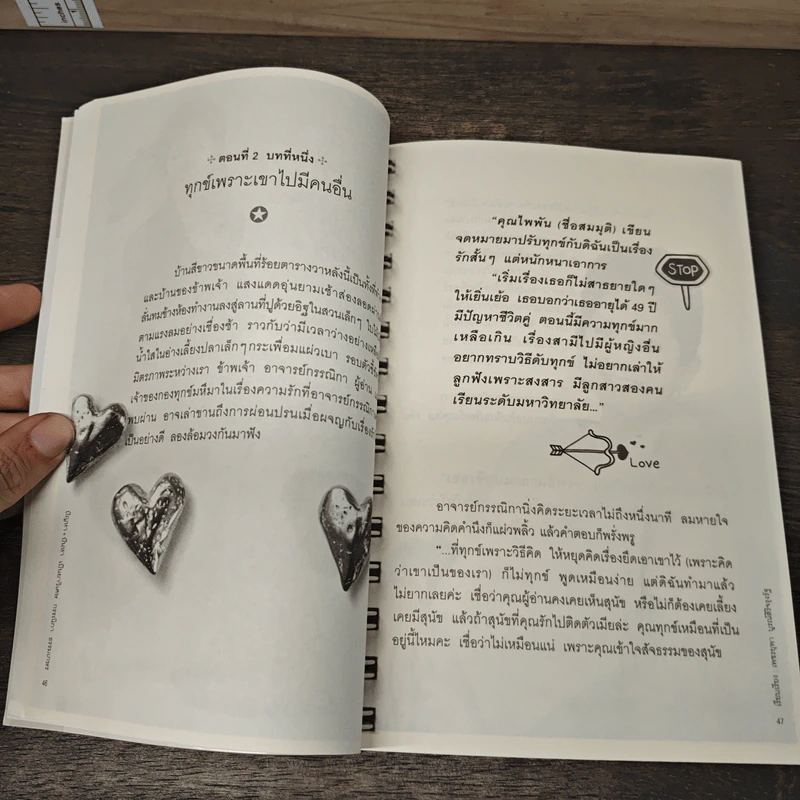 inches
ตอนที่ 2 บทที่หนึ่ง
ทุกข์เพราะเขาไปมีคนอื่น
บ้านสีขาวขนาดพื้นที่ร้อยตารางวาหลังนี้เป็นทั้งที่
และบ้านของข้าพเจ้า แสงแดดอุ่นยามเช้าส่องลอด
ลั่นทมข้างห้องทำงานลงสู่ลานที่ปูด้วยอิฐในสวนเล็กๆ
ตามแรงลมอย่างเชื่องช้า ราวกับว่ามีเวลาว่างอย่าง
น้ำใสในอ่างเลี้ยงปลาเล็กๆ กระเพื่อมแผ่วเบา รอบตัว
มิตรภาพระหว่างเรา ข้าพเจ้า อาจารย์กรรณิกา ผู้อ่าน
เจ้าของกองทุกข์มหึมาในเรื่องความรักที่อาจารย์กรรณิกา
พบผ่าน อาจเล่าขานถึงการผ่อนปรนเมื่อผจญกับเรื่อง
เป็นอย่างดี ลองล้อมวงกันมาฟัง
“คุณไพพัน (ชื่อสมมุติ) เขียน
จดหมายมาปรับทุกข์กับดิฉันเป็นเรื่อง
รักสั้นๆ แต่หนักหนาเอาการ
“เริ่มเรื่องเธอก็ไม่สาธยายใดๆ
ให้เยิ่นเย้อ เธอบอกว่าเธออายุได้ 49 ปี
มีปัญหาชีวิตคู่ ตอนนี้มีความทุกข์มาก
เหลือเกิน เรื่องสามีไปมีผู้หญิงอื่น
อยากทราบวิธีดับทุกข์ ไม่อยากเล่าให้
ลูกฟังเพราะสงสาร มีลูกสาวสองคน
เรียนระดับมหาวิทยาลัย...”
STOP
Love
อาจารย์กรรณิกานิ่งคิดระยะเวลาไม่ถึงหนึ่งนาที ลมหายใจ
ของความคิดคำนึงก็แผ่วพลิ้ว แล้วคำตอบก็พรั่งพรู
“...ที่ทุกข์เพราะวิธีคิด ให้หยุดคิดเรื่องยึดเอาเขาไว้ (เพราะคิด
ว่าเขาเป็นของเรา) ก็ไม่ทุกข์ พูดเหมือนง่าย แต่ดิฉันทำมาแล้ว
ไม่ยากเลยค่ะ เชื่อว่าคุณผู้อ่านคงเคยเห็นสุนัข หรือไม่ก็ต้องเคยเลี้ยง
เคยมีสุนัข แล้วถ้าสุนัขที่คุณรักไปติดตัวเมียล่ะ คุณทุกข์เหมือนที่เป็น
อยู่นี้ไหมคะ เชื่อว่าไม่เหมือนแน่ เพราะคุณเข้าใจสัจธรรมของสุนัข
47